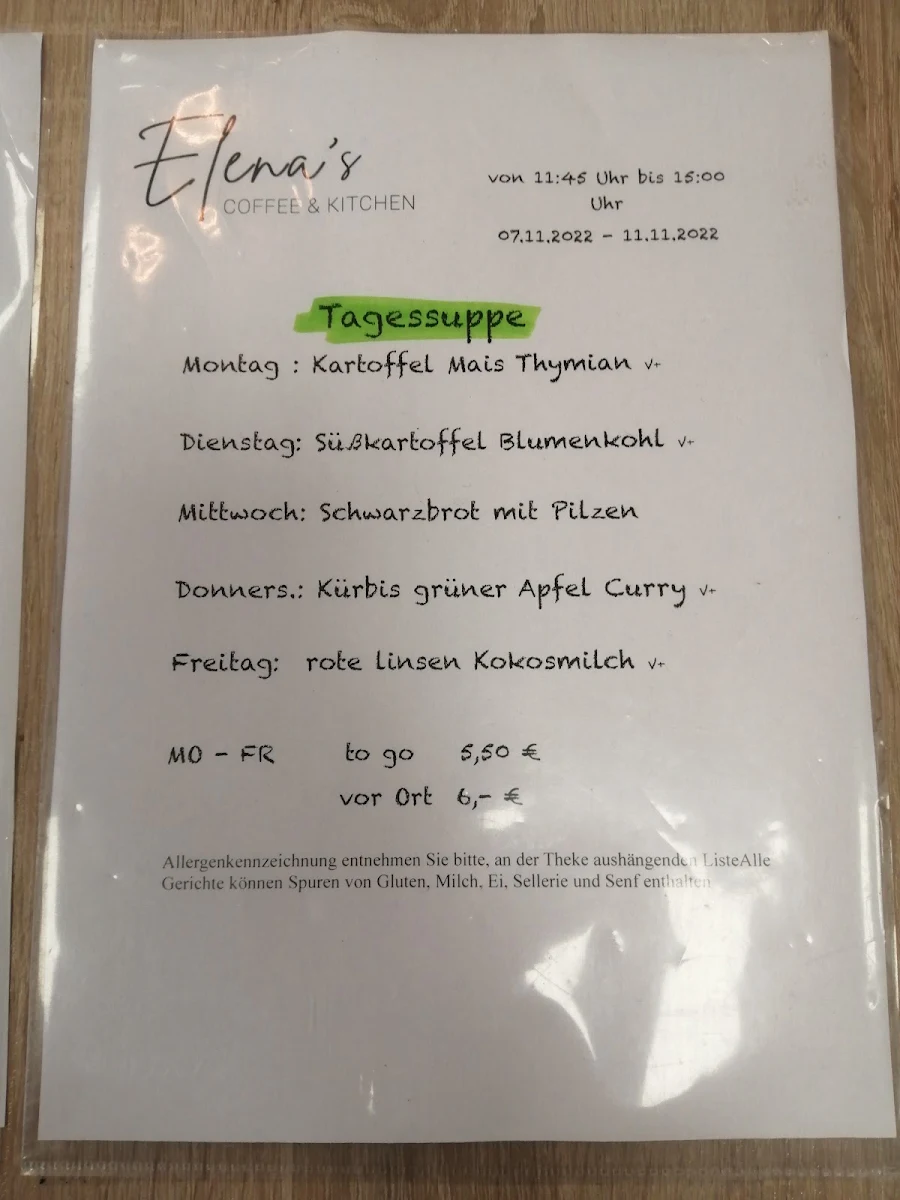 Elena's
COFFEE & KITCHEN
von 11:45 Uhr bis 15:00
Uhr
07.11.2022 - 11.11.2022
Tagessuppe
Montag : Kartoffel Mais Thymian v+
Dienstag: Süßkartoffel Blumenkohl v+
Mittwoch: Schwarzbrot mit Pilzen
Donners.: Kürbis grüner Apfel Curry v+
Freitag: rote linsen Kokosmilch v+
MO - FR to go 5,50 €
vor Ort 6,- €
Allergenkennzeichnung entnehmen Sie bitte, an der Theke aushängenden ListeAlle
Gerichte können Spuren von Gluten, Milch, Ei, Sellerie und Senf enthalten